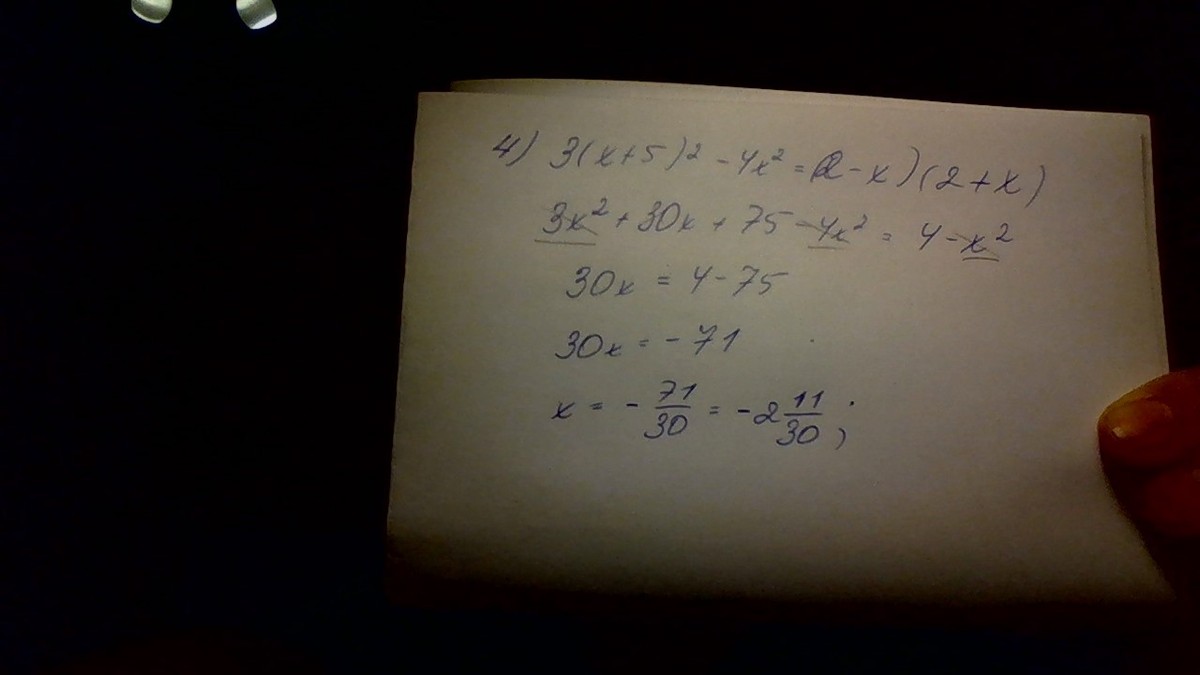 4) 3(x+5)² - 4x² = (2-x)(2+x)
3x² + 30x + 75 - 4x² = 4 - x²
30x = 4 - 75
30x = - 71
x = - 71/30 = - 2 11/30 ;